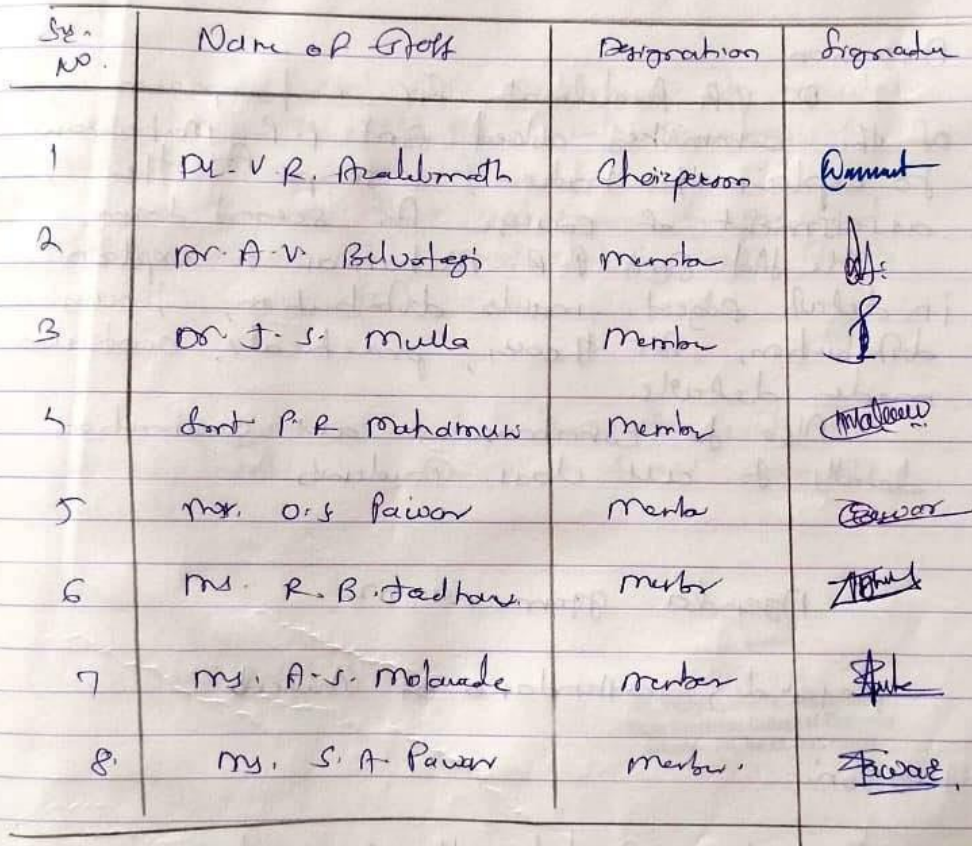 Sr. No. Name of Staff Designation Signature
1 Dr. V. R. Chairperson
2 Dr. A. V. Belvotagi Member
3 Dr J. S. Mulla Member
4 Smt P. R. Mahamuni Member
5 Mr. O. S Pawar Member Pawar
6 Ms. R. B. Jadhav. Member
7 Ms. A. S. Member
8. Ms. S. A. Pawar Member. Pawar